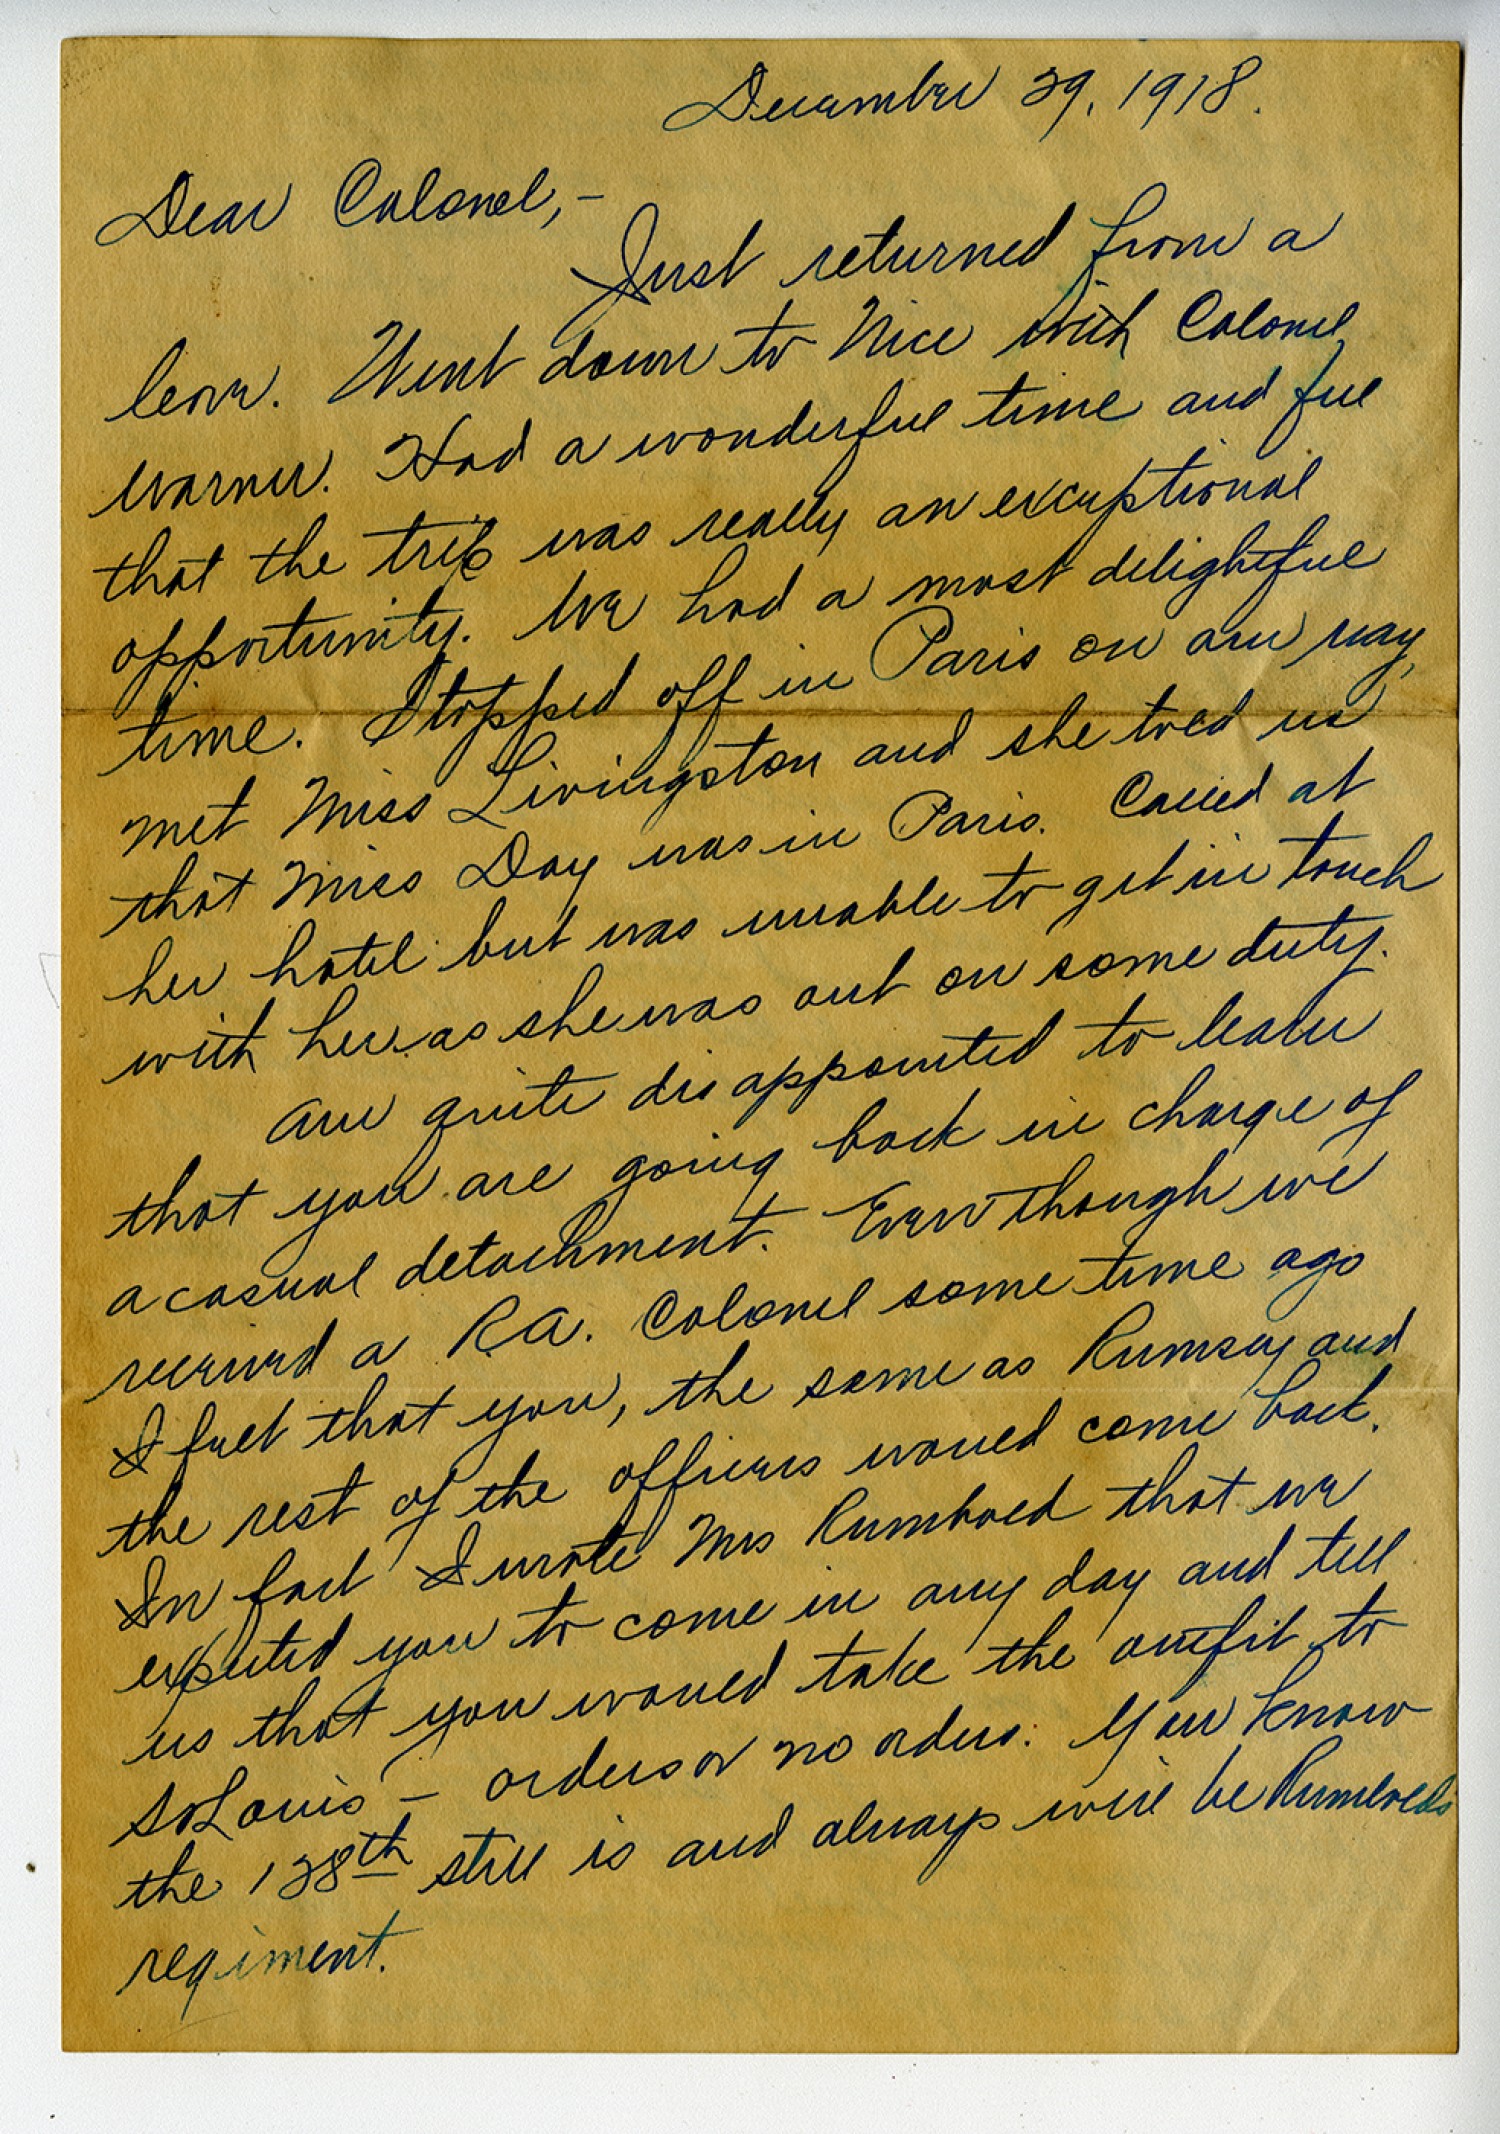 December 29, 1918.
Dear Colonel,-
Just returned from a
leave. Went down to Nice with Colonel
Warner. Had a wonderful time and feel
that the trip was really an exceptional
opportunity. We had a most delightful
time. Stopped off in Paris on our way,
met Miss Livingston and she told us
that Miss Day was in Paris. Called at
her hotel but was unable to get in touch
with her as she was out on some duty.
Am quite disappointed to learn
that you are going back in charge of
a casual detachment. Even though we
received a R.A. Colonel some time ago
I feel that you, the same as Rumsey and
the rest of the officers would come back.
In fact I wrote Mrs Rumbold that we
expected you to come in any day and tell
us that you would take the outfit to
St Louis - orders or no orders. You know
the 138th still is and always will be Rumbolds
regiment.